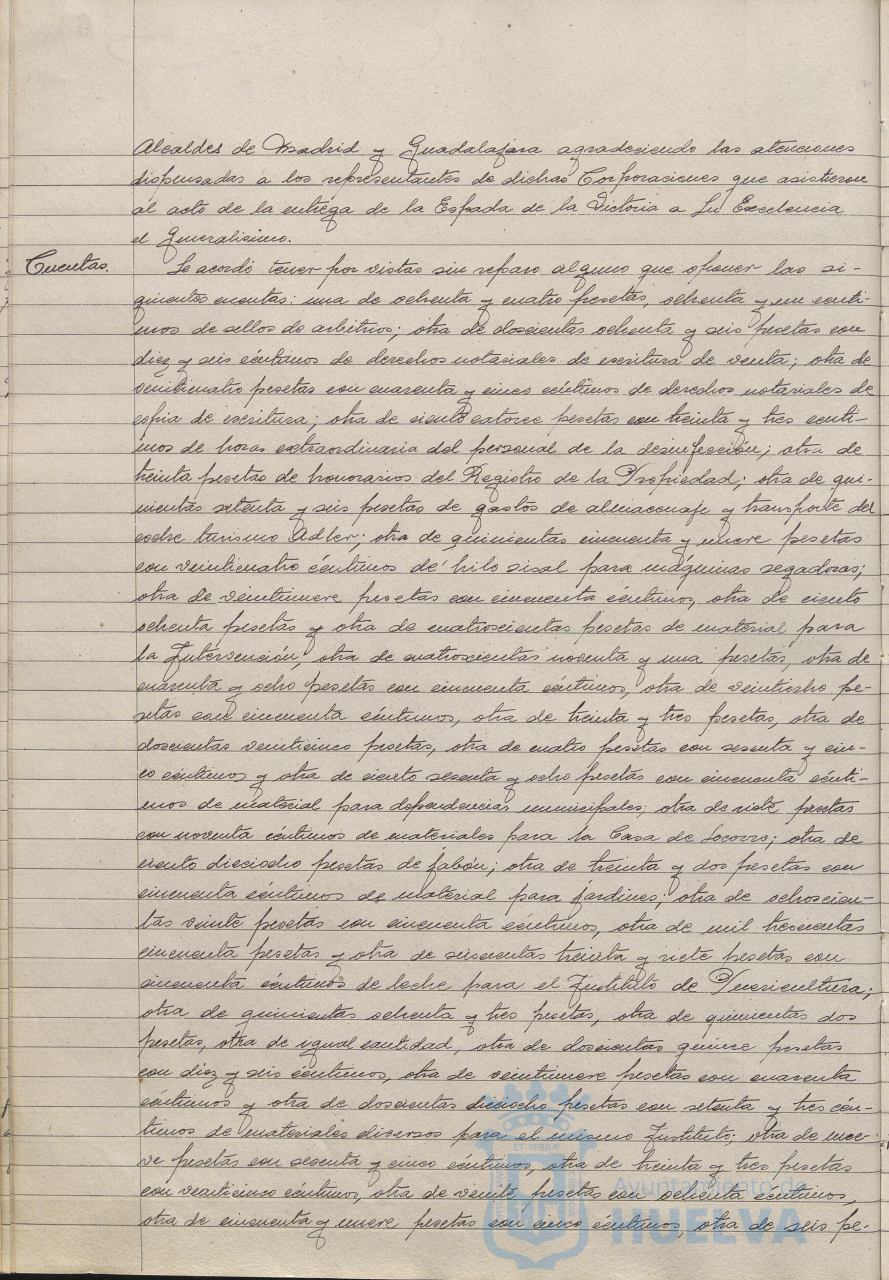 Alcaldes de Madrid y Guadalajara agradeciendo las atenciones
dispensadas a los representantes de dichas Corporaciones que asistieron
al acto de la entrega de la Espada de la Victoria a Su Excelencia
el Generalisimo.
Cuentas.
Se acordó tener por vistas sin reparo alguno que oponer las si-
guientes cuentas: una de ochenta y cuatro pesetas, ochenta y un cénti-
mos de sellos de arbitrios; otra de doscientas ochenta y seis pesetas con
diez y seis céntimos de derechos notariales de escritura de venta; otra de
veinticuatro pesetas con cuarenta y cinco céntimos de derechos notariales de
copia de escritura; otra de ciento catorce pesetas con treinta y tres cénti-
mos de horas extraordinaria del personal de la desinfección; otra de
treinta pesetas de honorarios del Registro de la Propiedad; otra de qui-
nientas setenta y seis pesetas de gastos de almacenaje y transporte del
coche turismo Adler; otra de quinientas cincuenta y nueve pesetas
con veinticuatro céntimos de hilo sisal para máquinas segadoras;
otra de veintinueve pesetas con cincuenta céntimos, otra de ciento
ochenta pesetas y otra de cuatroscientas pesetas de material para
la Intervención, otra de cuatroscientas noventa y una pesetas, otra de
cuarenta y ocho pesetas con cincuenta céntimos, otra de veintiocho pe-
setas con cincuenta céntimos, otra de treinta y tres pesetas, otra de
doscientas veinticinco pesetas, otra de cuatro pesetas con sesenta y cin-
co céntimos y otra de ciento sesenta y ocho pesetas con cincuenta cénti-
mos de material para dependencias municipales; otra de siete pesetas
con noventa céntimos de materiales para la Casa de Socorro; otra de
ciento dieciocho pesetas de jabón; otra de treinta y dos pesetas con
cincuenta céntimos de material para jardines; otra de ochoscien-
tas veinte pesetas con cincuenta céntimos, otra de mil trescientas
cincuenta pesetas y otra de seiscientas treinta y siete pesetas con
cincuenta céntimos de leche para el Instituto de Puericultura;
otra de quinientas ochenta y tres pesetas, otra de quinientas dos
pesetas, otra de igual cantidad, otra de doscientas quince pesetas
con diez y seis céntimos, otra de veintinueve pesetas con cuarenta
céntimos y otra de doscientas dieciocho pesetas con setenta y tres cén-
timos de materiales diversos para el mismo Instituto; otra de nue-
ve pesetas con sesenta y cinco céntimos, otra de treinta y tres pesetas
con veinticinco céntimos, otra de veinte pesetas con ochenta céntimos,
otra de cincuenta y nueve pesetas con cinco céntimos, otra de seis pe-
Ayuntamiento de
HUELVA